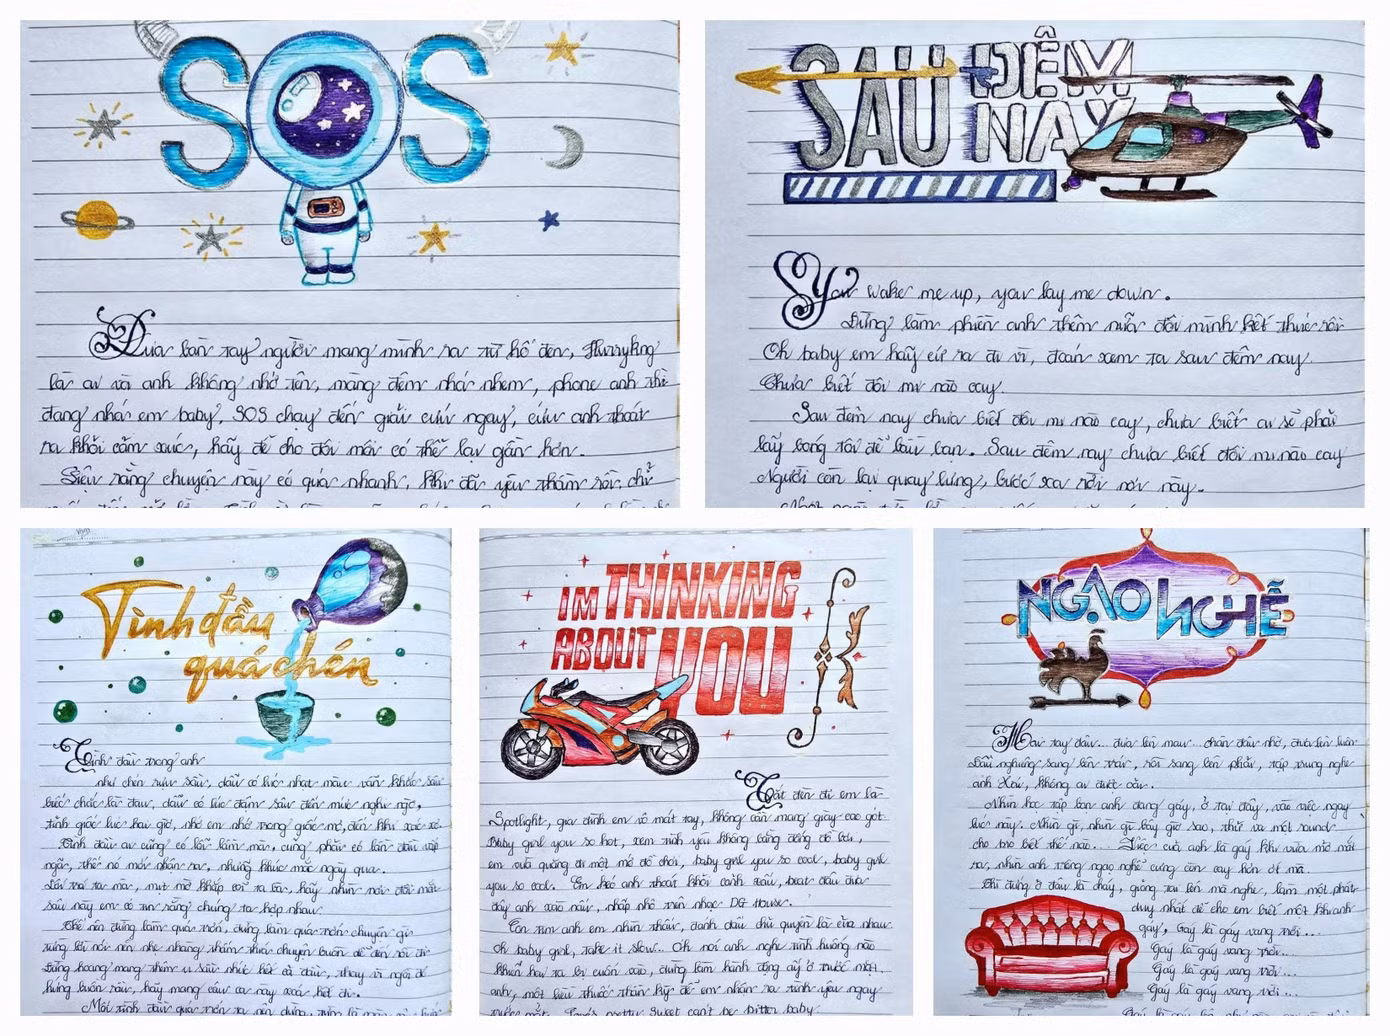 SOS
Đưa bàn tay người mang mình ra từ hố đen, Hurrykng
là ai và anh không nhớ tên, màng đêm nhá nhem, phone anh thì
đang nhá em baby, SOS chạy đến giải cứu ngay, cứu anh thoát
ra khỏi cảm xúc, hãy để cho đôi môi có thể lại gần hơn.
Điệu rằng chuyện này có quá nhanh, khi đã yêu thầm rồi, chỉ
SAU ĐÊM NAY
You wake me up, you lay me down.
Đừng làm phiền anh thêm nữa đôi mình kết thúc rồi
Oh baby em hãy cứ ra đi vì, đoán xem ta sau đêm nay
Chưa biết đôi mi nào cay.
Sau đêm nay chưa biết đôi mi nào cay, chưa biết ai sẽ phải
lấy bóng tối để làm bạn. Sau đêm nay chưa biết đôi mi nào cay
Người còn lại quay lưng, bước xa rời nơi này.
Tình đầu
quá chén
Tình đầu trong anh
như chén rượu sầu, dẫu có lúc nhạt màu vẫn khắc sâu
biết chắc là đau, dẫu có lúc đậm sâu đến mức nghi ngờ,
tỉnh giấc lúc hai giờ, nhớ em nhớ trong giấc mơ, đến khi xác xơ.
Tình đầu ai cũng có lỗi lầm mà, cũng phải có lần đầu vấp
ngã, thế nó mới nhận ra, những khúc mắc ngày qua.
sau này em có tin rằng chúng ta hợp nhau.
Thế nên đừng làm quá, đừng làm quá trớn chuyện gì
Đừng hoang mang thêm u sầu nhức hết cả đầu, thay vì ngồi đó
I'M THINKING
ABOUT YOU
Tắt đèn đi em là
Spotlight, gia đình em vô mát tay, không cần mang giày cao gót
Baby girl you so hot, xem tình yêu không bằng đẳng đồ bởi,
em vứt quăng đi một mớ đồ chơi, baby girl you so cool, baby girl
you so cool. Em kéo anh thoát khỏi cảnh xấu, beat đầu đưa
đây anh xào nấu, nhấp nhô trên nhạc DG House.
Con tim anh em nhìn thấu, đánh dấu chủ quyền là của nhau.
Oh baby girl, take it slow... Oh nơi anh nghe tình huống nào
khiến hai ta bị cuốn vào, đừng làm hành động ấy ở trước mặt
anh, một liều thuốc thần kỳ để em nhận ra tình yêu ngay
trước mắt. Love's pretty, sweet can't be bitter baby.
NGẠO NGHỄ
Hai tay đâu... đưa lên mau... chân đâu nhờ, đưa lên luôn
Đầu nghiêng sang bên trái, rồi sang bên phải, tập trung nghe
anh Xái, không ai được cãi.
Nhìn học tập bọn anh đang gáy, ở tại đây, vào việc ngay
lúc này. Nhìn gì, nhìn gì bây giờ sao, thử vài một round
cho bro biết thế nào... Việc của anh là gáy khi vừa mở mắt
ra, nhìn anh trông ngạo nghễ cũng còn cay hơn ớt mà.
Chỉ đứng ở đâu là cháy, giỏng tai lên mà nghe, làm một phát
duy nhất để cho em biết một khi anh
gáy, Gáy là gáy vang trời...
Gáy là gáy vang trời...
Gáy là gáy vang trời...
Gáy là gáy vang trời...